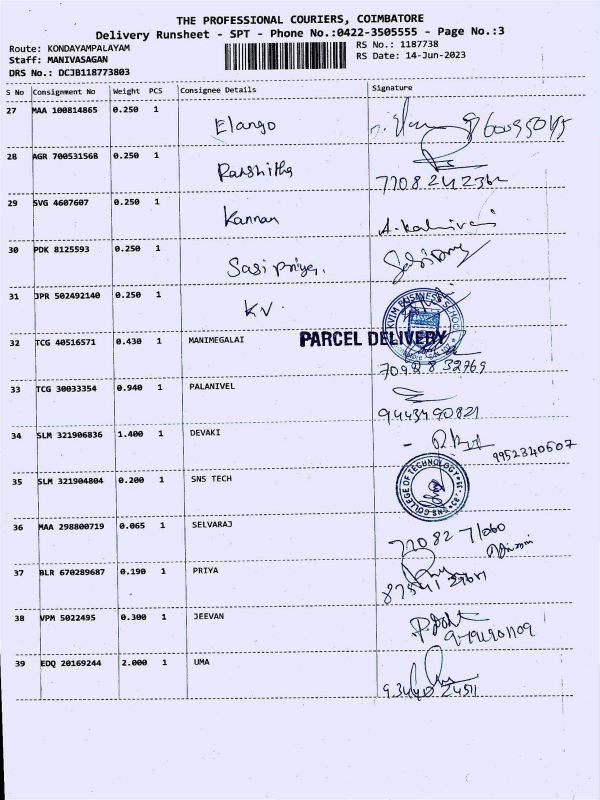 THE PROFESSIONAL COURIERS, COIMBATORE
Delivery Runsheet - SPT - Phone No.:0422-3505555 - Page No.:3
Route: KONDAYAMPALAYAM RS No.: 1187738
Staff: MANIVASAGAN RS Date: 14-Jun-2023
DRS No.: DCJB118773803
S No Consignment No Weight PCS Consignee Details Signature
27 MAA 100814865 0.250 1 Elango
28 AGR 700531568 0.250 1 Rakshitha
7708242362
29 SVG 4607607 0.250 1 Kannan
30 PDK 8125593 0.250 1 Sasi Priya.
31 JPR 502492140 0.250 1 KV.
KVIM BUSINESS SCHOOL
32 TCG 40516571 0.430 1 MANIMEGALAI PARCEL DELIVERY
33 TCG 30033354 0.940 1 PALANIVEL
9443490821
34 SLM 321906836 1.400 1 DEVAKI
9952340607
35 SLM 321904804 0.200 1 SNS TECH
SNS COLLEGE OF TECHNOLOGY
36 MAA 298800719 0.065 1 SELVARAJ
37 BLR 670289687 0.190 1 PRIYA
38 VPM 5022495 0.300 1 JEEVAN
39 EDQ 20169244 2.000 1 UMA